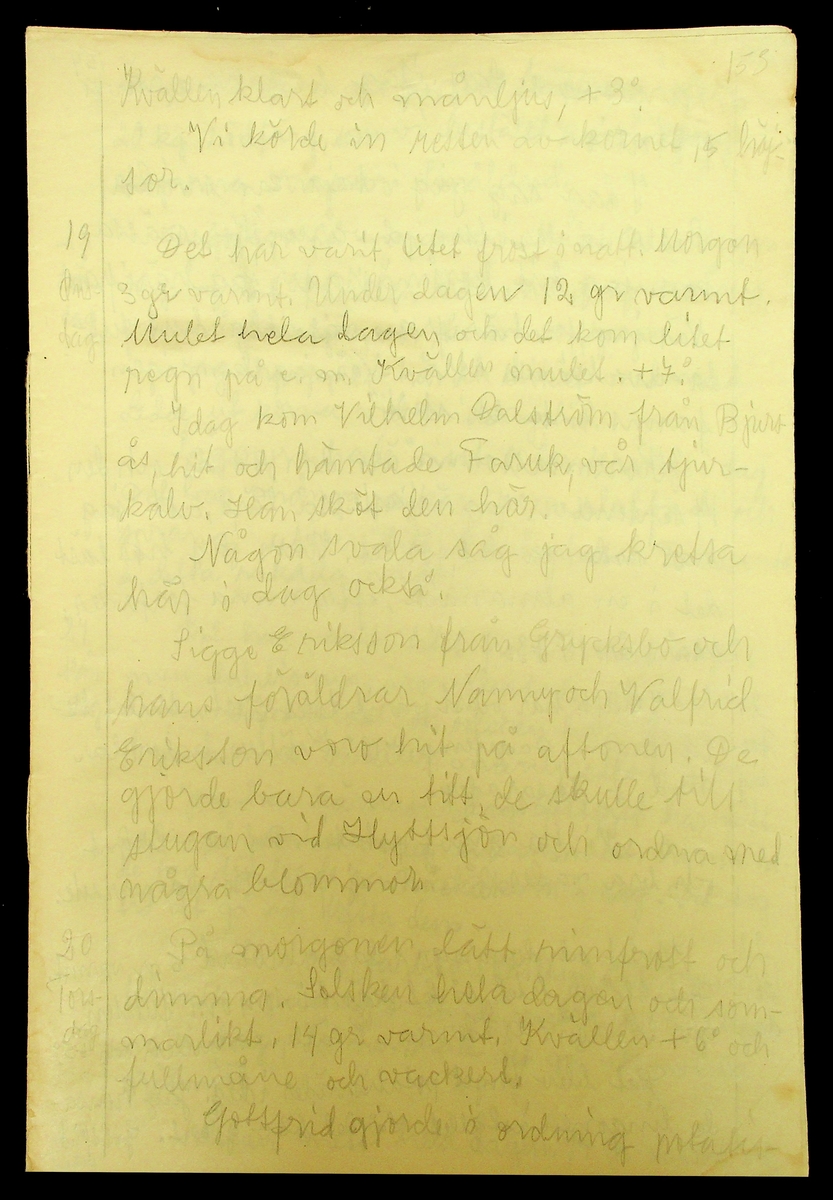 155
Kvällen klart och månljus, +3°.
Vi körde in resten av kornet, 5 häs-
sor.
19 Det har varit litet frost i natt. Morgon
Ons- 3 gr varmt. Under dagen 12 gr varmt.
dag Mulet hela dagen och det kom litet
regn på e. m. Kvällen mulet. +7°.
Idag kom Vilhelm Dalström från Bjurs-
ås, hit och hämtade Faruk, vår tjur-
kalv. Han sköt den här.
Någon svala såg jag kretsa
här i dag också.
Sigge Eriksson från Grycksbo och
hans föräldrar Nanny och Valfrid
Eriksson voro hit på aftonen. De
gjorde bara en titt, de skulle till
stugan vid Hyttsjön och ordna med
några blommor.
20 På morgonen lätt rimfrost och
Tors- dimma. Solsken hela dagen och som-
dag marlikt, 14 gr varmt. Kvällen +6° och
fullmåne och vackert.
Gottfrid gjorde i ordning potatis-